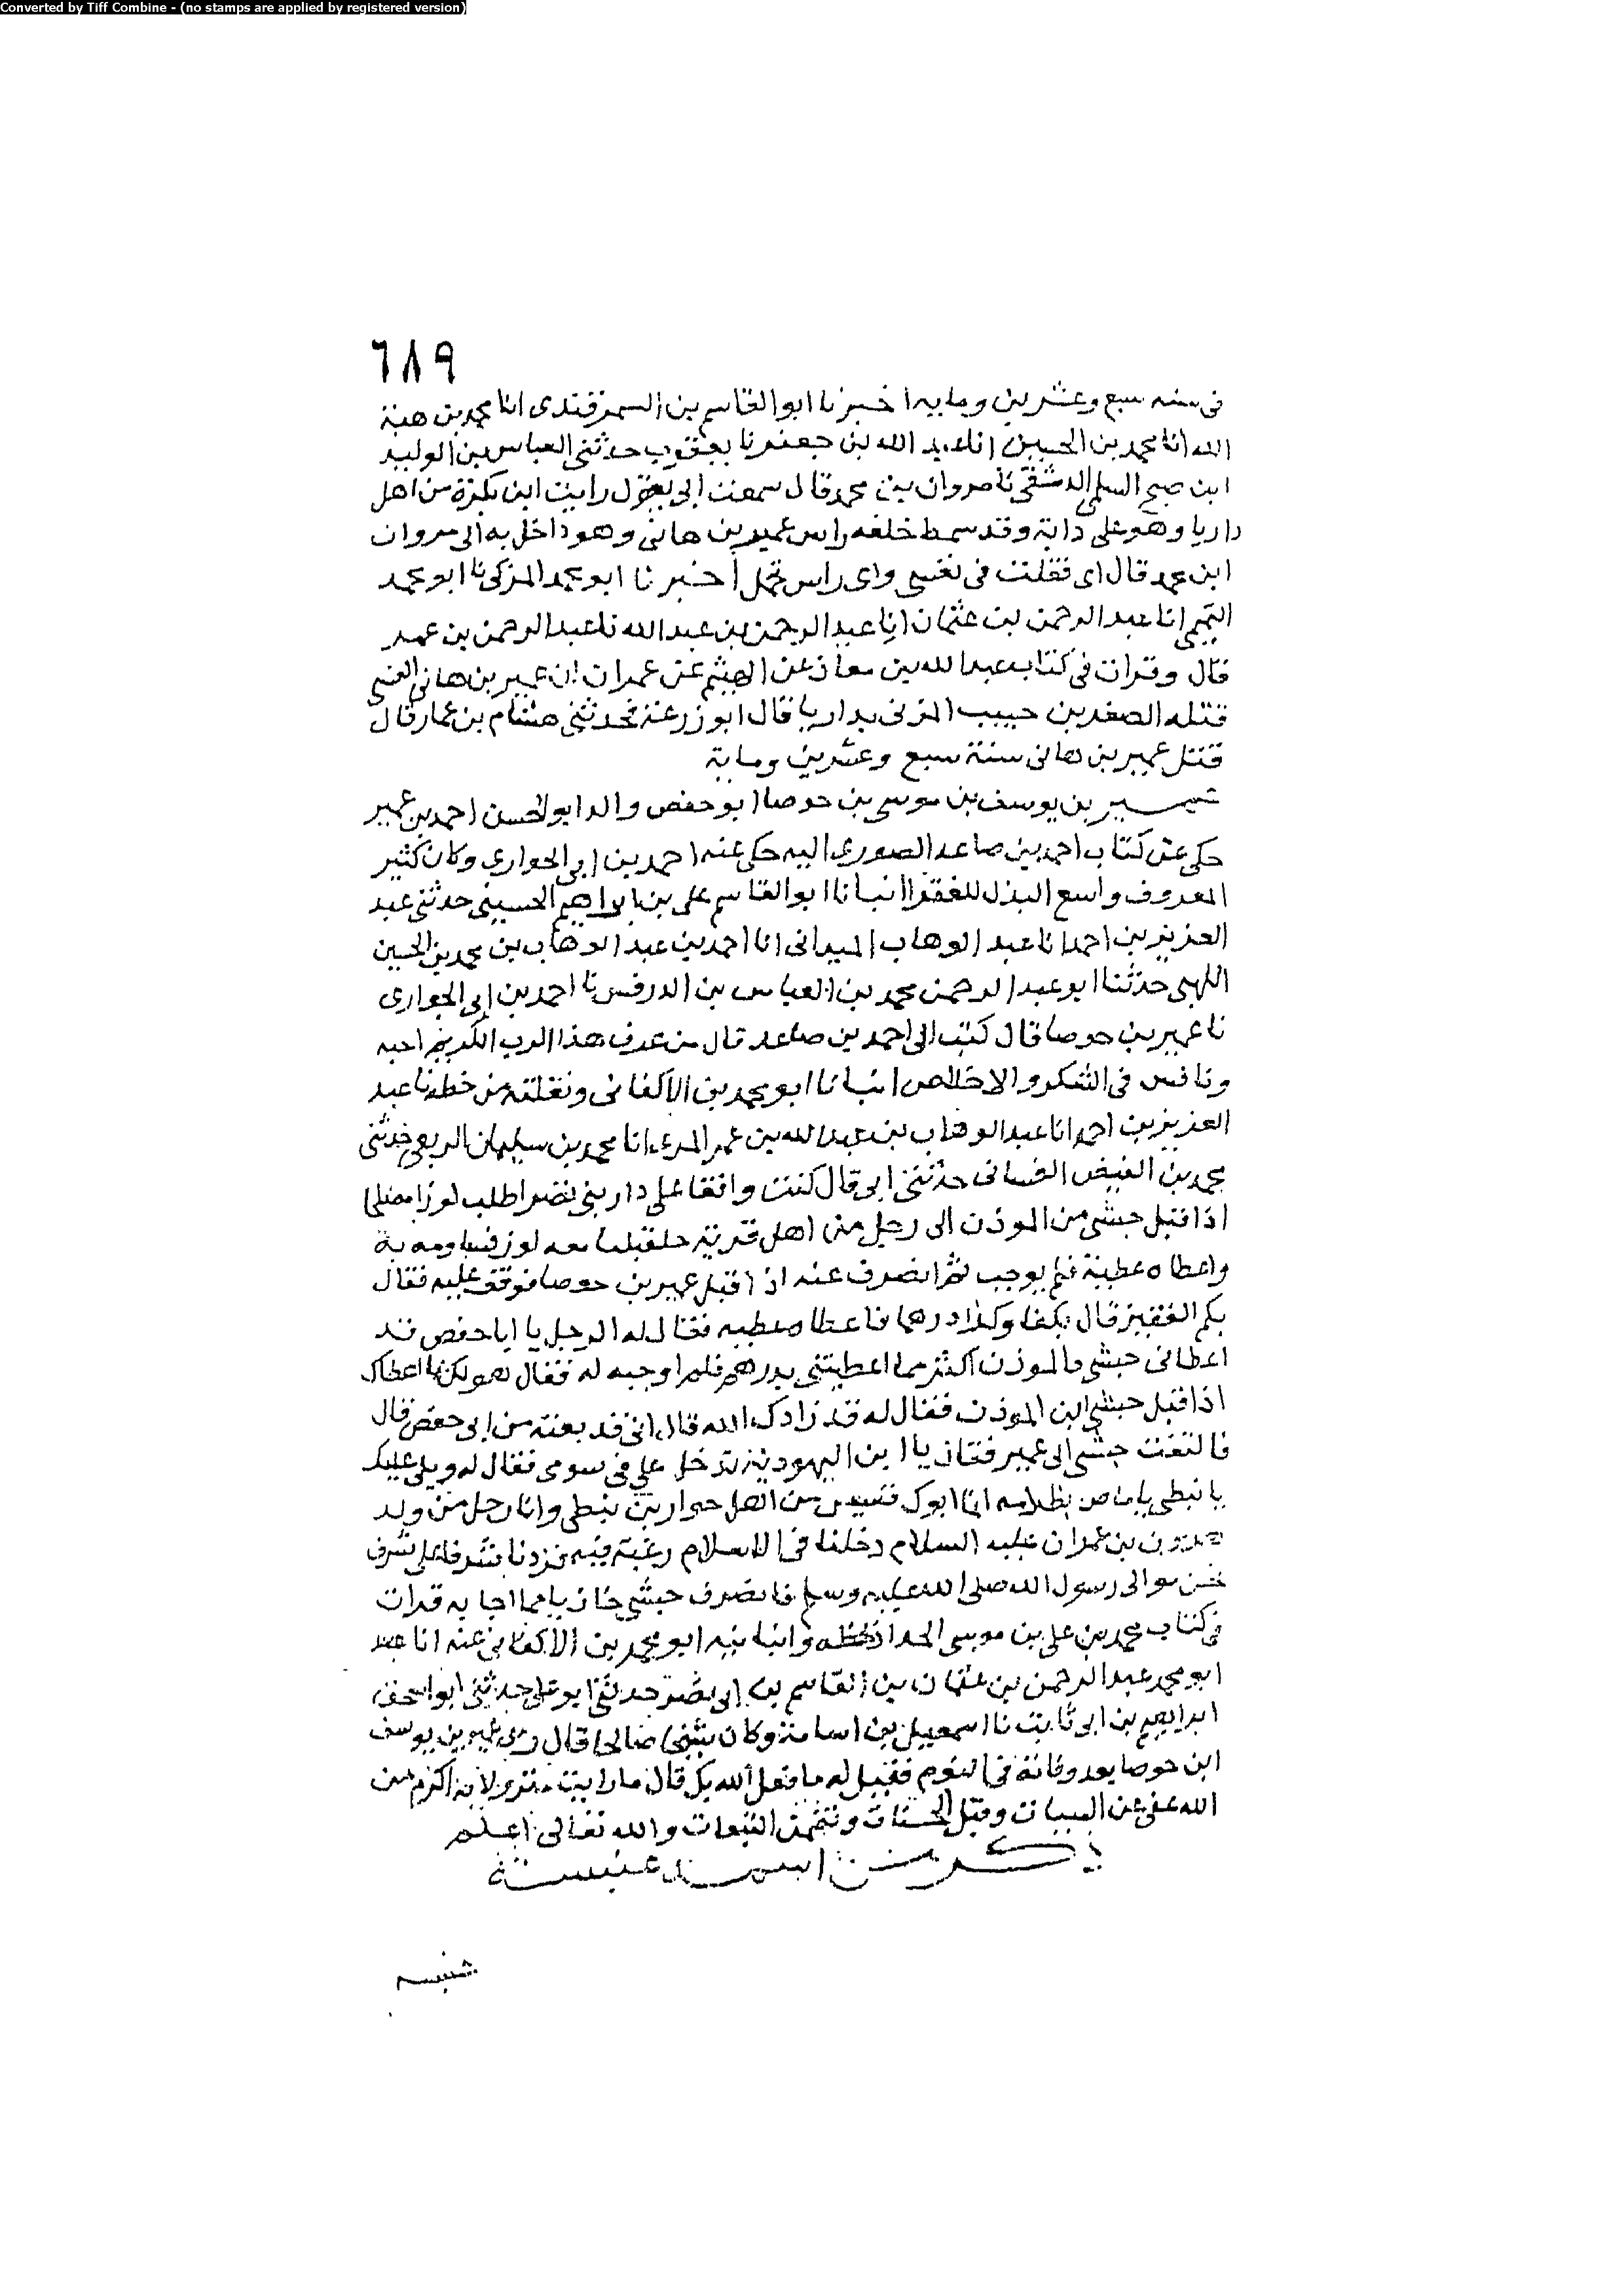 Converted by Tiff Combine - (no stamps are applied by registered version)
٦٨٩
فى سنه سبع وعشرين ومايه اخبرنا ابو القاسم بن السمرقندى انا محمد بن هبة
الله انا محمد بن الحسين انا عبد الله بن جعفر نا يعقوب حدثنى العباس بن الوليد
ابن صبح السلمى الدمشقى نا مروان بن محمد قال سمعت ابى يقول رايت ابن مرة من اهل
داريا وهو على دابة وقد سمط خلفه راس عمير بن هانى وهو داخل به الى مروان
ابن محمد قال اى فقلت فى نفسى واى راس تحمل اخبرنا ابو محمد المزكى نا ابو محمد
التميمى انا عبد الرحمن بن عثمان انا عبد الرحمن بن عبد الله نا عبد الرحمن بن عمر
قال وقرات فى كتاب عبد الله بن معاذ عن الهيثم عن عمران ان عمير بن هانى العنسى
قتله الصقر بن حبيب المزنى بداريا قال ابو زرعة فحدثنى هشام بن عمار قال
قتل عمير بن هانى سنة سبع وعشرين وماية
عمير بن يوسف بن موسى بن حوصا ابو حفص والد ابو الحسن احمد بن عمير
حكى عن كتاب احمد بن صاعد الصورى اليه حكى عنه احمد بن ابى الحوارى وكان كثير
المعروف واسع البذل للفقرا انبانا ابو القاسم على بن ابراهيم الحسينى حدثنى عبد
العزيز بن احمد انا عبد الوهاب الميدانى انا احمد بن عبد الوهاب بن محمد بن الحسين
اللهبى حدثنا ابو عبد الرحمن محمد بن العباس بن الدرفس نا احمد بن ابى الحوارى
نا عمير بن حوصا قال كتب الى احمد بن صاعد قال من عرف هذا الرب الكريم احبه
ونافس فى الشكر والاخلاص انبانا ابو محمد بن الاكفانى ونقلته من خطه نا عبد
العزيز بن احمد انا عبد الوهاب بن عبد الله بن عمر المرى انا محمد بن سليمان الربعى حدثنى
محمد بن الفيض الغسانى حدثنى ابى قال كنت واقفا على دار بنى نصر اطلب لوزا
اذ اقبل حبشى بن الموذن الى رجل من اهل قرية معه لوز فساومه به
واعطاه عطية فلم يوجب ثم انصرف عنه اذ اقبل عمير بن حوصا فوقف عليه فقال
بكم القفيز قال بكذا وكذا درهما فاعطاه عطيه فقال له الرجل يا ابا حفص قد
اعطانى حبشى بن الموذن اكثر مما اعطيتنى بدرهم فلم اوجبه له فقال هو لك بما اعطاك
اذ اقبل حبشى ابن الموذن فقال له قد زادك الله قال انى قد بعته من ابى حفص قال
فالتفت حبشى الى عمير فقال يا ابن اليهودية تدخل على فى سومى فقال له ويلى عليك
يا نبطى انما ابوك قسيس من اهل نبطى وانا رجل من ولد
هرون بن عمران عليه السلام دخلنا فى الاسلام رغبة فيه فزدنا شرفا على شرف
نحن موالى رسول الله صلى الله عليه وسلم فانصرف حبشى مما اجابه قرات
فى كتاب محمد بن على بن موسى الحداد بخطه وانبانيه ابو محمد بن الاكفانى عنه انا
ابو محمد عبد الرحمن بن عثمان بن القاسم بن ابى نصر حدثنى ابو على حدثنى ابو اسحق
ابراهيم بن ابى ثابت نا اسمعيل بن اسامة وكان شيخا صالحا قال روى عمير بن يوسف
ابن حوصا بعد وفاته فى النوم فقيل له ما فعل الله بك قال ما رايت لانه اكرم من
الله عفى عن السيات وقبل الحسنات وتضمن التبعات والله تعالى اعلم
ذكر من اسمه عنبسة